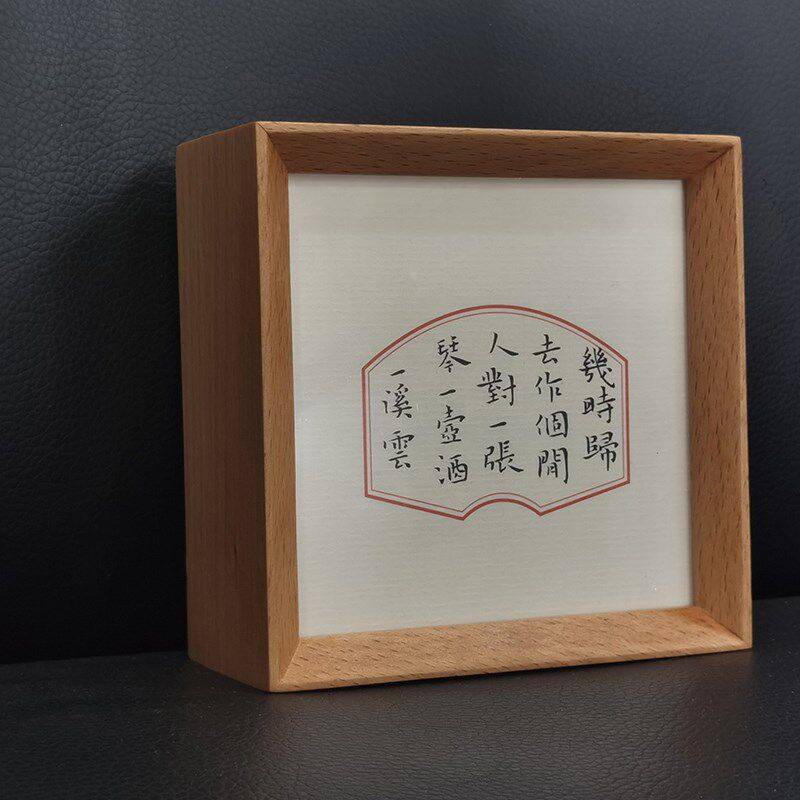 幾時歸
去作個閒
人對一張
琴一壺酒
一溪雲